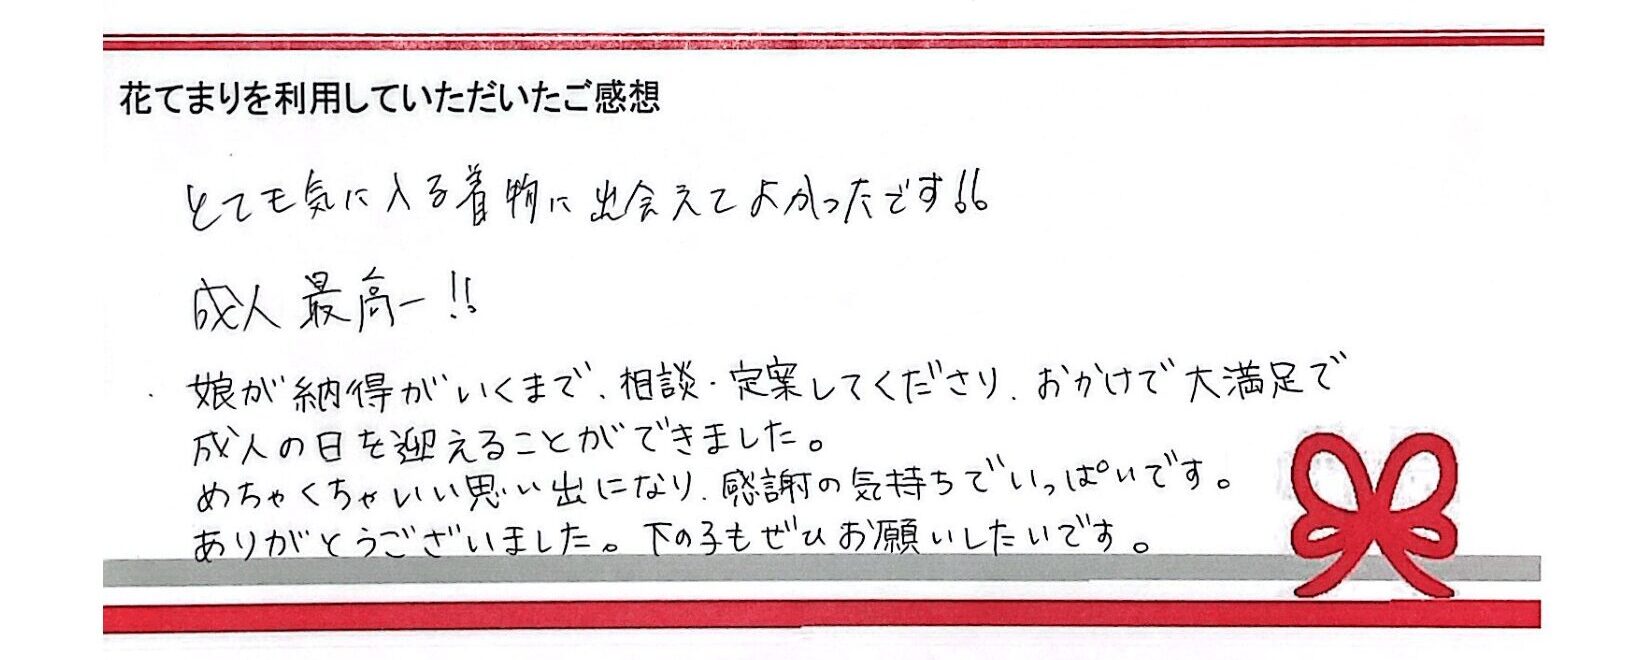 花てまりを利用していただいたご感想
とても気に入る着物に出会えてよかったです!!
成人最高ー!!
娘が納得がいくまで、相談・定案してくださり、おかげで大満足で
成人の日を迎えることができました。
めちゃくちゃいい思い出になり、感謝の気持ちでいっぱいです。
ありがとうございました。下の子もぜひお願いしたいです。